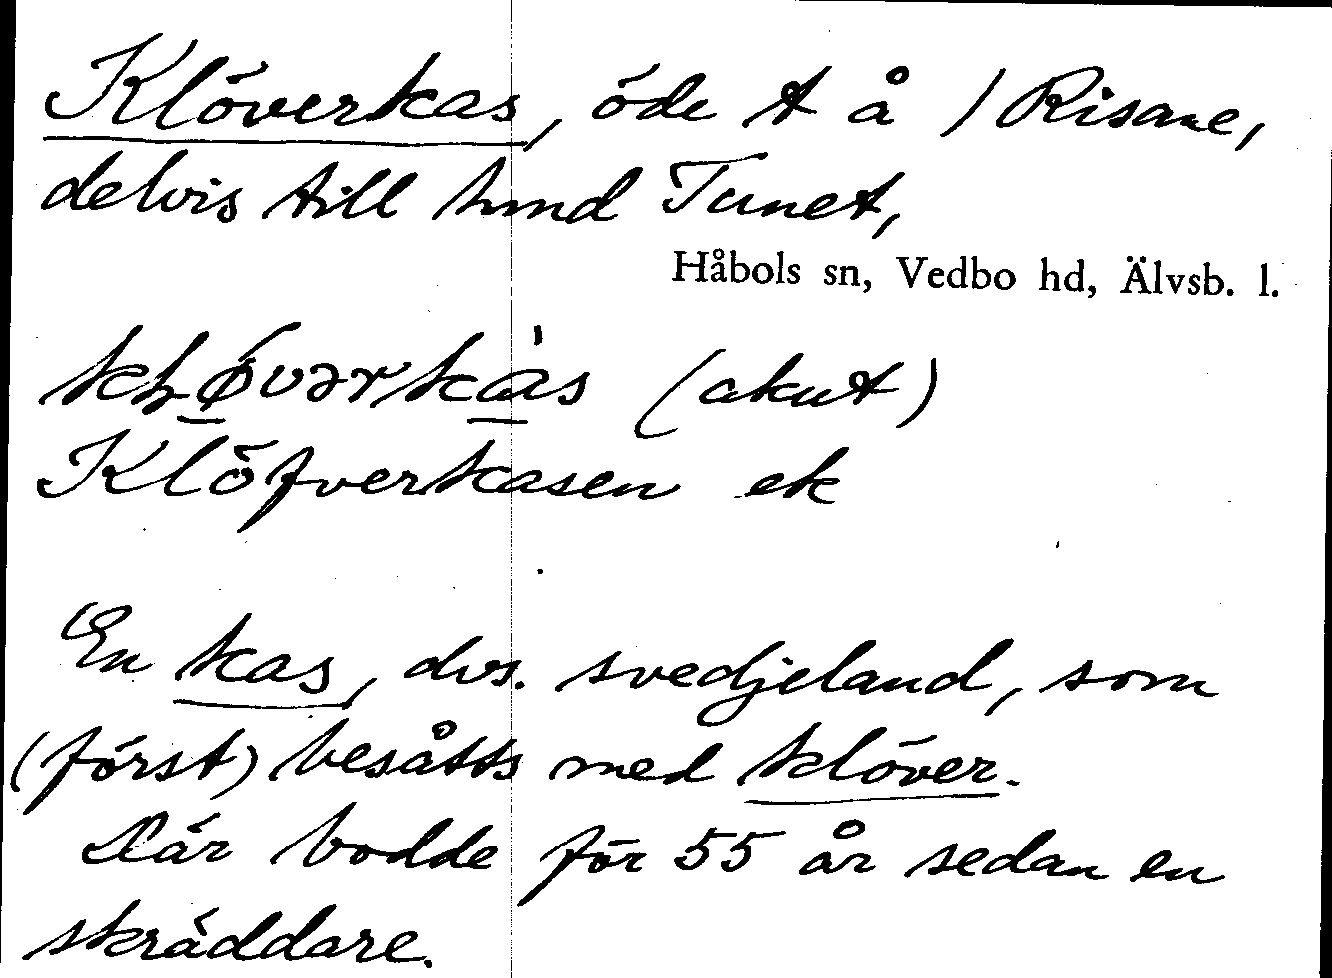 Klöverkas, öde t å 1 Risane,
delvis till hmd Tunet,
Håbols sn, Vedbo hd, Älvsb. l.
(akut)
Klöfverkasen ek
En kas, dvs. svedjeland, som
(först) besåtts med klöver.
Där bodde för 55 år sedan en
skräddare.